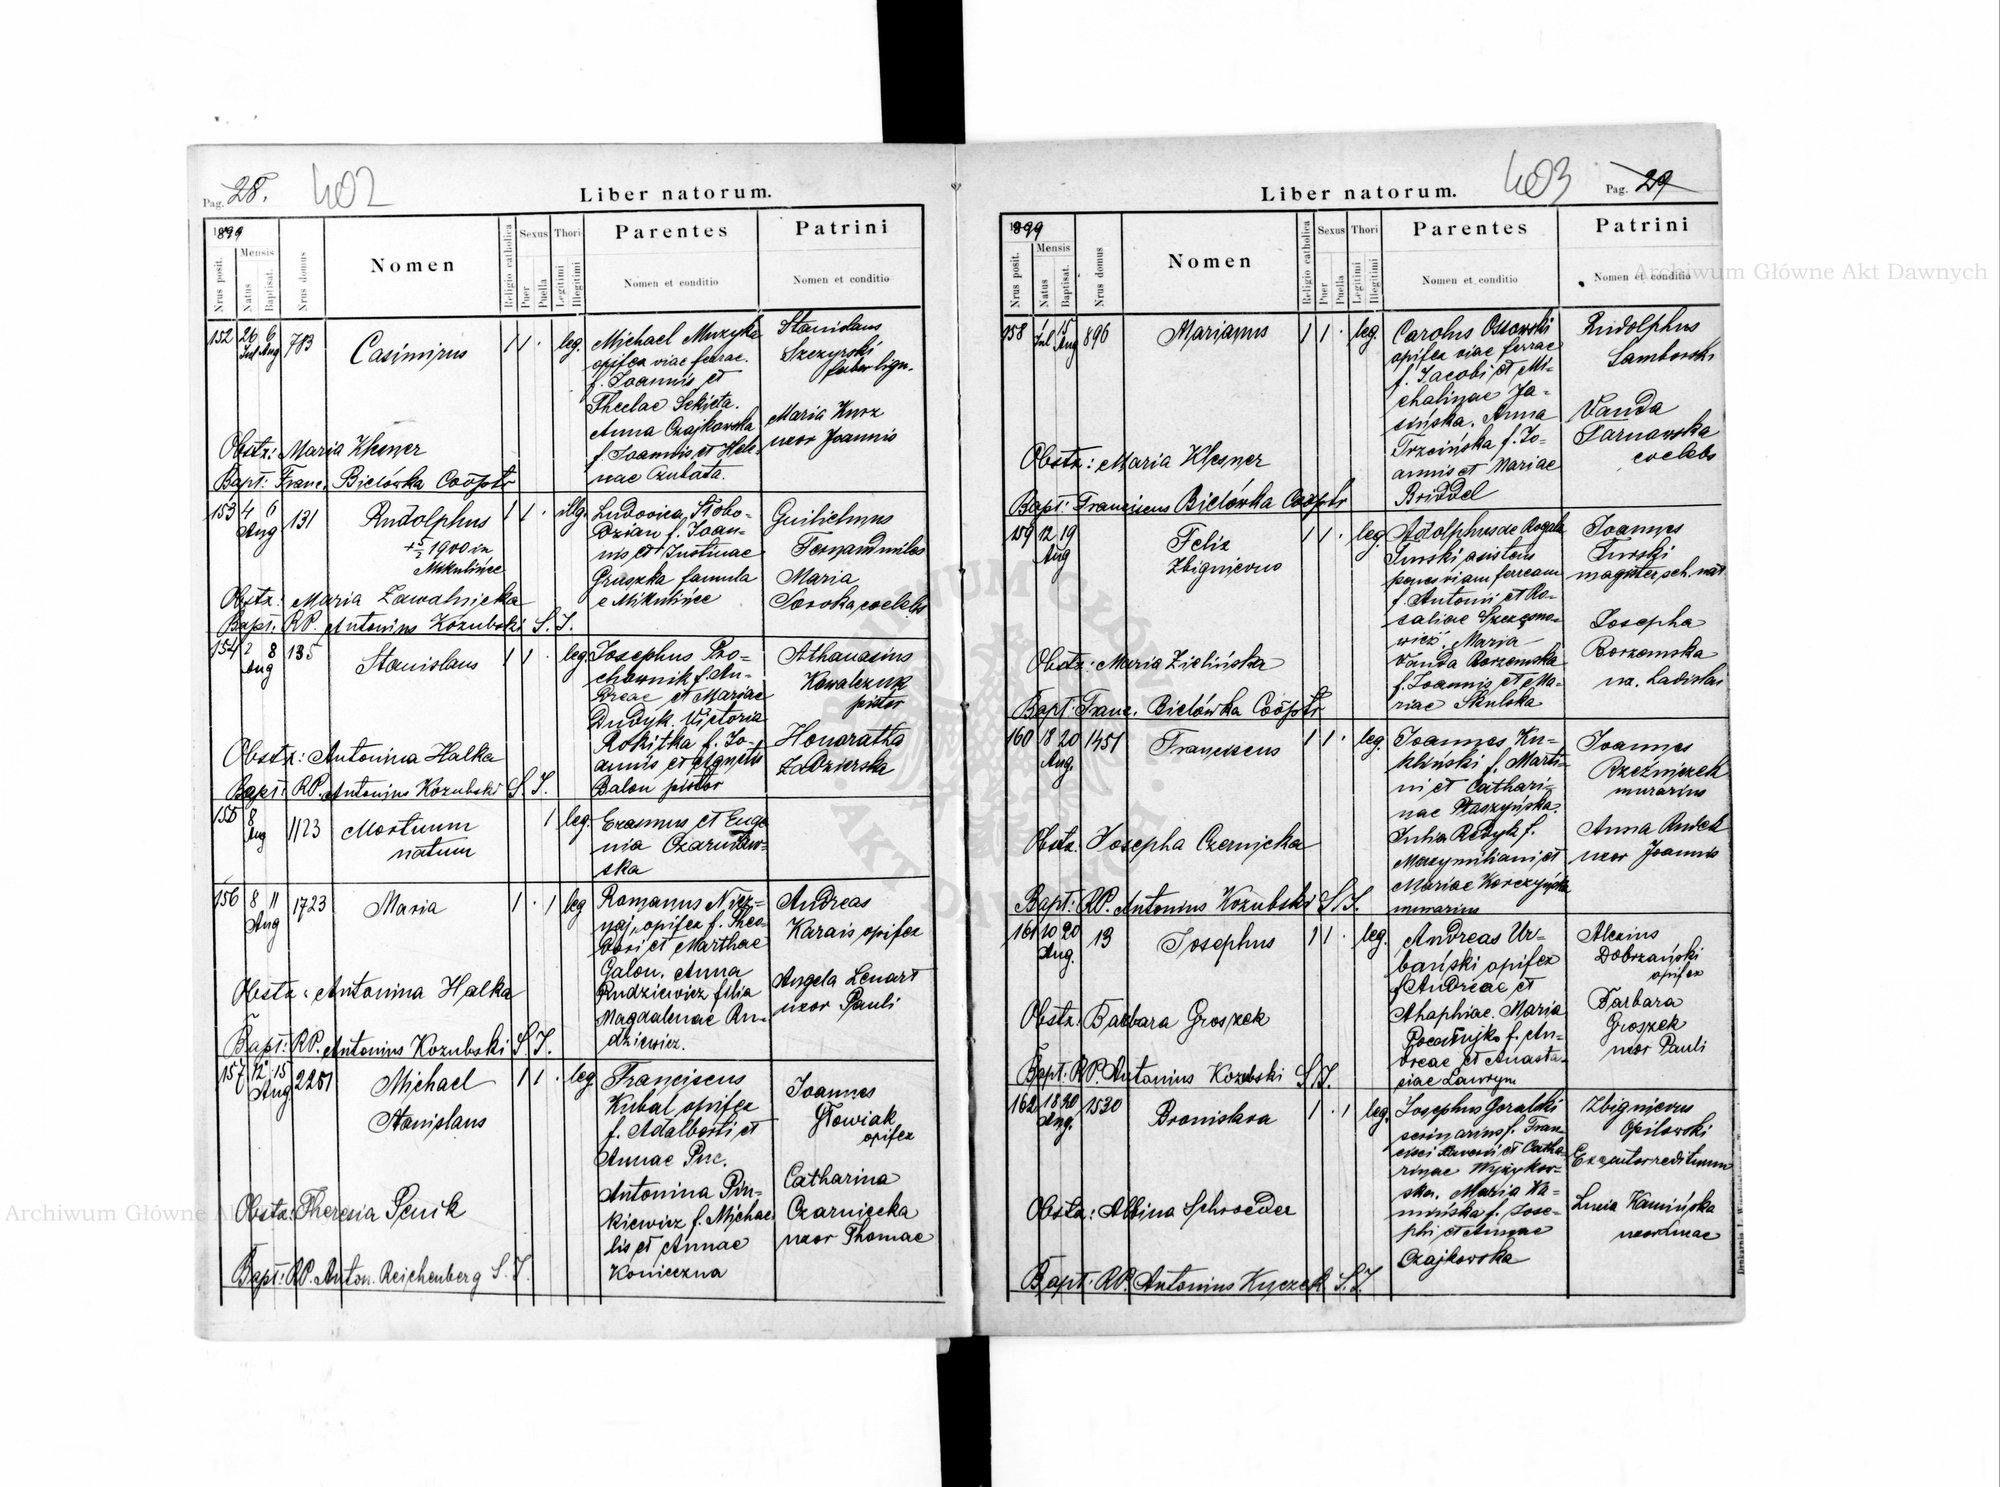 Pag. 28. 402
Liber natorum.
1899
Nrus posit.
Mensis
Natus
Baptisat.
Nrus domus
Nomen
Religio catholica
Sexus
Puer
Puella
Thori
Legitimi
Illegitimi
Parentes
Nomen et conditio
Patrini
Nomen et conditio
152 26 Jul 6 Aug 783 Casimirus 1 1 . leg.
Michael Muzyka
opifex viae ferrae.
f. Joannis et
Theclae Sekieta.
Anna Czajkowska
f. Joannis et Hele-
nae Czubata.
Stanislaus
Szczyrski
faber lign.
Maria Kurz
uxor Joannis
Obstz: Maria Klesner
Bapt: Franc. Bielówka Coöptr
153 4 6 Aug 131 Rudolphus 1 1 . illg.
+ 5/2 1900 in
Mikulińce
Ludovica Słobo-
dzian f. Joan-
nis et Justinae
Gruszka famula
e Mikulińce
Guilielmus
Maria
Soroka coelebs
Obstz: Maria Zawalnicka
Bapt: RP. Antonius Kozubski S.J.
154 2 8 Aug 135 Stanislaus 1 1 . leg.
Josephus Pro-
chownik f. An-
dreae et Mariae
Dudyk. Victoria
Rokitka f. Jo-
annis et Agnetis
Balon pistor
Athanasius
Kowalczuk
pistor
Honoratha
Zadzierska
Obstz: Antonina Halka
Bapt: RP. Antonius Kozubski S.J.
155 8 Aug 1123 Mortuum 1 leg.
natum
Erasmus et Euge
nia Czarnow-
ska
156 8 11 Aug 1723 Maria 1 . 1 leg
Romanus Niez-
naj, opifex f. Theo-
dosi et Marthae
Galon. Anna
Rudziewicz filia
Magdalenae Ru-
dziewicz.
Andreas
Karais opifex
Angela Lenart
uxor Pauli
Obstz: Antonina Halka
Bapt: RP. Antonius Kozubski S.J.
157 12 15 Aug 2251 Michael 1 1 . leg.
Stanislaus
Franciscus
Kubal opifex
f. Adalberti et
Annae Puc.
Antonina Pin-
kiewicz f. Michae
lis et Annae
Konieczna
Joannes
Głowiak
opifex
Catharina
Czarniecka
uxor Thomae
Obstz: Theresia Senik
Bapt: RP. Anton. Reichenberg S.J.
Liber natorum.
403 Pag. 29
1899
Nrus posit.
Mensis
Natus
Baptisat.
Nrus domus
Nomen
Religio catholica
Sexus
Puer
Puella
Thori
Legitimi
Illegitimi
Parentes
Nomen et conditio
Patrini
Nomen et conditio
158 1 Jul 15 Aug 896 Marianus 1 1 . leg.
Carolus Ossowski
opifex viae ferrae
f. Jacobi et Mi-
chalinae Ja-
sińska. Anna
Trzcińska f. Jo-
annis et Mariae
Briddel
Rudolphus
Samborski
Vanda
Tarnawska
coelebs
Obstz: Maria Klesner
Bapt: Franciscus Bielówka Coöptr
159 12 19 Aug Felix 1 1 . leg.
Zbignievus
Adolphus de Rogala
Turski asistens
penes viam ferream
f. Antonii et Ro-
saliae Szczęsno-
wicz. Maria
Vanda Borzemska
f. Joannis et Ma-
riae Skulska
Joannes
Turski
magister, sch. nat.
Josepha
Borzemska
ux. Ladislai
Obstz: Maria Zielińska
Bapt: Franc. Bielówka Coöptr
160 18 20 Aug. 1451 Franciscus 1 1 . leg.
Joannes Ku-
kliński f. Marti-
ni et Cathari-
nae Ptaszyńska.
Julia Redyk f.
Maxymiliani et
Mariae Korczyńska
murarius
Joannes
Rzeźniczek
murarius
Anna Rudek
uxor Joannis
Obstz. Josepha Czernicka
Bapt: RP. Antonius Kozubski S.J.
161 10 20 Aug. 13 Josephus 1 1 . leg.
Andreas Ur-
bański opifex
f. Andreae et
Ahaphiae. Maria
f. An-
dreae et Anasta-
siae Lawryn
Alexius
Dobrzański
opifex
Barbara
Groszek
uxor Pauli
Obstz: Barbara Groszek
Bapt: RP. Antonius Kozubski S.J.
162 18 20 Aug. 1530 Bronislava 1 . 1 leg.
Josephus Goralski
scriniarius f. Fran-
cisci Xaverii et Catha-
rinae Wyżykow-
ska. Maria Ka-
mińska f. Jose-
phi et Annae
Czajkowska
Zbignievus
Opilowski
Exequtor redituum
Lucia Kamińska
uxor Lucae
Obstz: Albina Schroeder
Bapt: RP. Antonius Kuczek S.J.
Archiwum Główne Akt Dawnych
Archiwum Główne Akt Dawnych